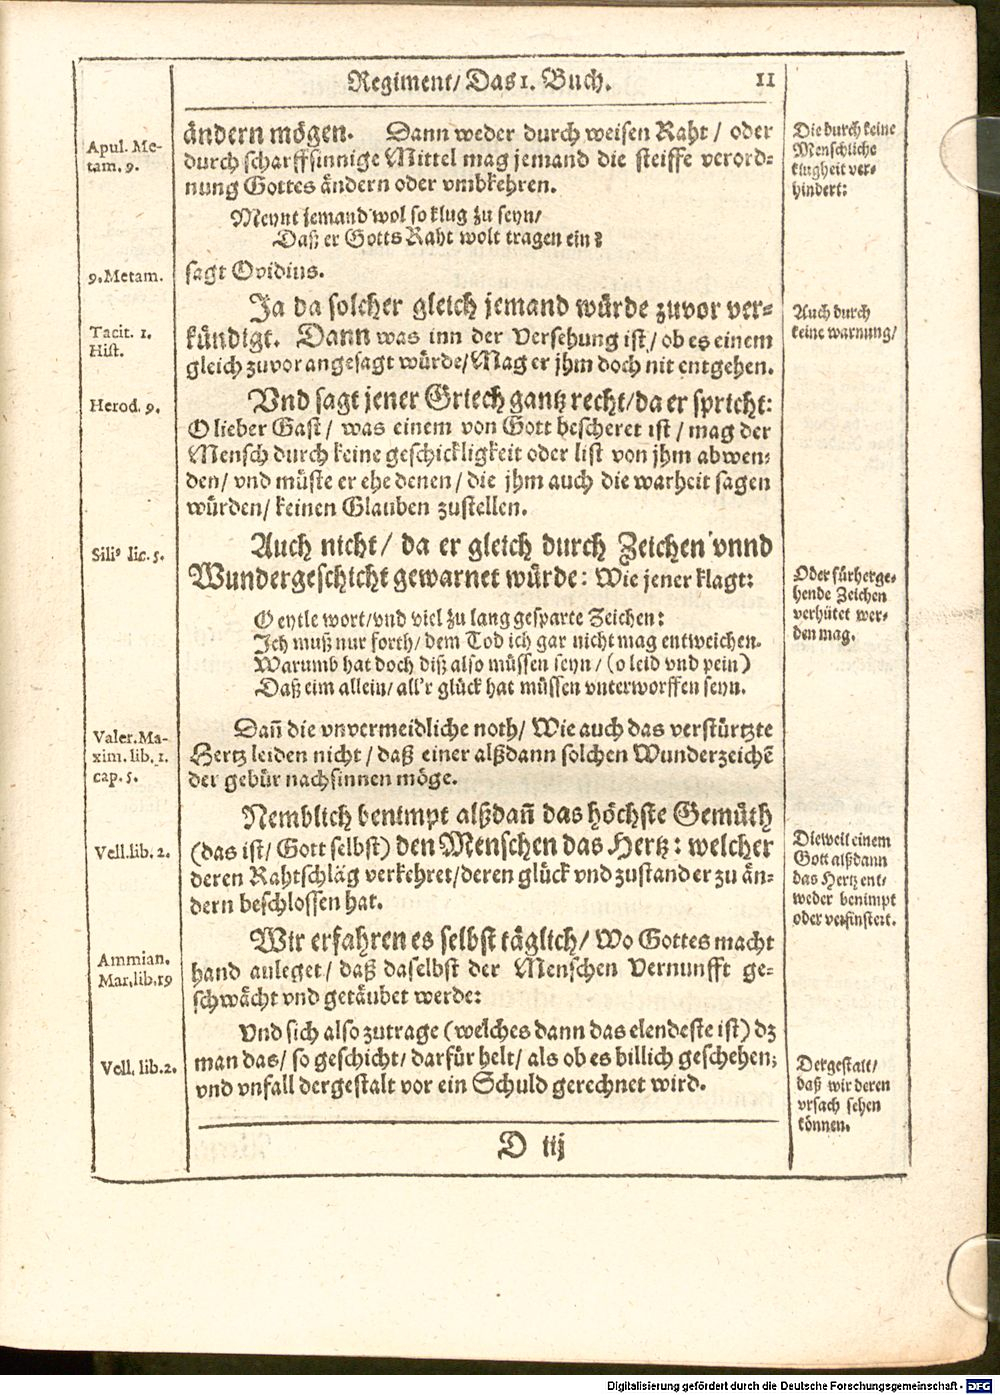 Regiment/ Das 1. Buch. 11
Apul. Me-
tam. 9.
ändern mögen. Dann weder durch weisen Raht / oder
durch scharffsinnige Mittel mag jemand die steiffe verord-
nung Gottes ändern oder vmbkehren.
Die durch keine
Menschliche
klugheit ver-
hindert:
Meynt jemand wol so klug zu seyn/
Daß er Gotts Raht wolt tragen ein?
9. Metam.
sagt Ovidius.
Ja da solcher gleich jemand würde zuvor ver-
kündigt. Dann was inn der Versehung ist / ob es einem
gleich zuvor angesagt würde/ Mag er jhm doch nit entgehen.
Tacit. 1.
Hist.
Auch durch
keine warnung/
Herod. 9.
Vnd sagt jener Griech gantz recht/ da er spricht:
O lieber Gast / was einem von Gott bescheret ist / mag der
Mensch durch keine geschickligkeit oder list von jhm abwen-
den/ vnd müste er ehe denen / die jhm auch die warheit sagen
würden/ keinen Glauben zustellen.
Auch nicht / da er gleich durch Zeichen vnnd
Wundergeschicht gewarnet würde: Wie jener klagt:
Sili⁹ lic. 5.
Oder fürherge-
hende Zeichen
verhütet wer-
den mag.
O eytle wort/ vnd viel zu lang gesparte Zeichen:
Ich muß nur forth/ dem Tod ich gar nicht mag entweichen.
Warumb hat doch diß also müssen seyn / (o leid vnd pein)
Daß eim allein/ all'r glück hat müssen vnterworffen seyn.
Valer. Ma-
xim. lib. 1.
cap. 5.
Dañ die vnvermeidliche noth/ Wie auch das verstürtzte
Hertz leiden nicht / daß einer alßdann solchen Wunderzeichẽ
der gebür nachsinnen möge.
Nemblich benimpt alßdañ das höchste Gemüth
(das ist/ Gott selbst) den Menschen das Hertz: welcher
deren Rahtschläg verkehret/ deren glück vnd zustand er zu än-
dern beschlossen hat.
Vell. lib. 2.
Dieweil einem
Gott alßdann
das Hertz ent-
weder benimpt
oder verfinstert.
Wir erfahren es selbst täglich / Wo Gottes macht
hand anleget / daß daselbst der Menschen Vernunfft ge-
schwächt vnd getäubet werde:
Ammian.
Mar. lib. 19
Vnd sich also zutrage (welches dann das elendeste ist) dz
man das/ so geschicht/ darfür helt/ als ob es billich geschehen;
vnd vnfall dergestalt vor ein Schuld gerechnet wird.
Vell. lib. 2.
Dergestalt/
daß wir deren
vrsach sehen
können.
D iij
Digitalisierung gefördert durch die Deutsche Forschungsgemeinschaft - DFG